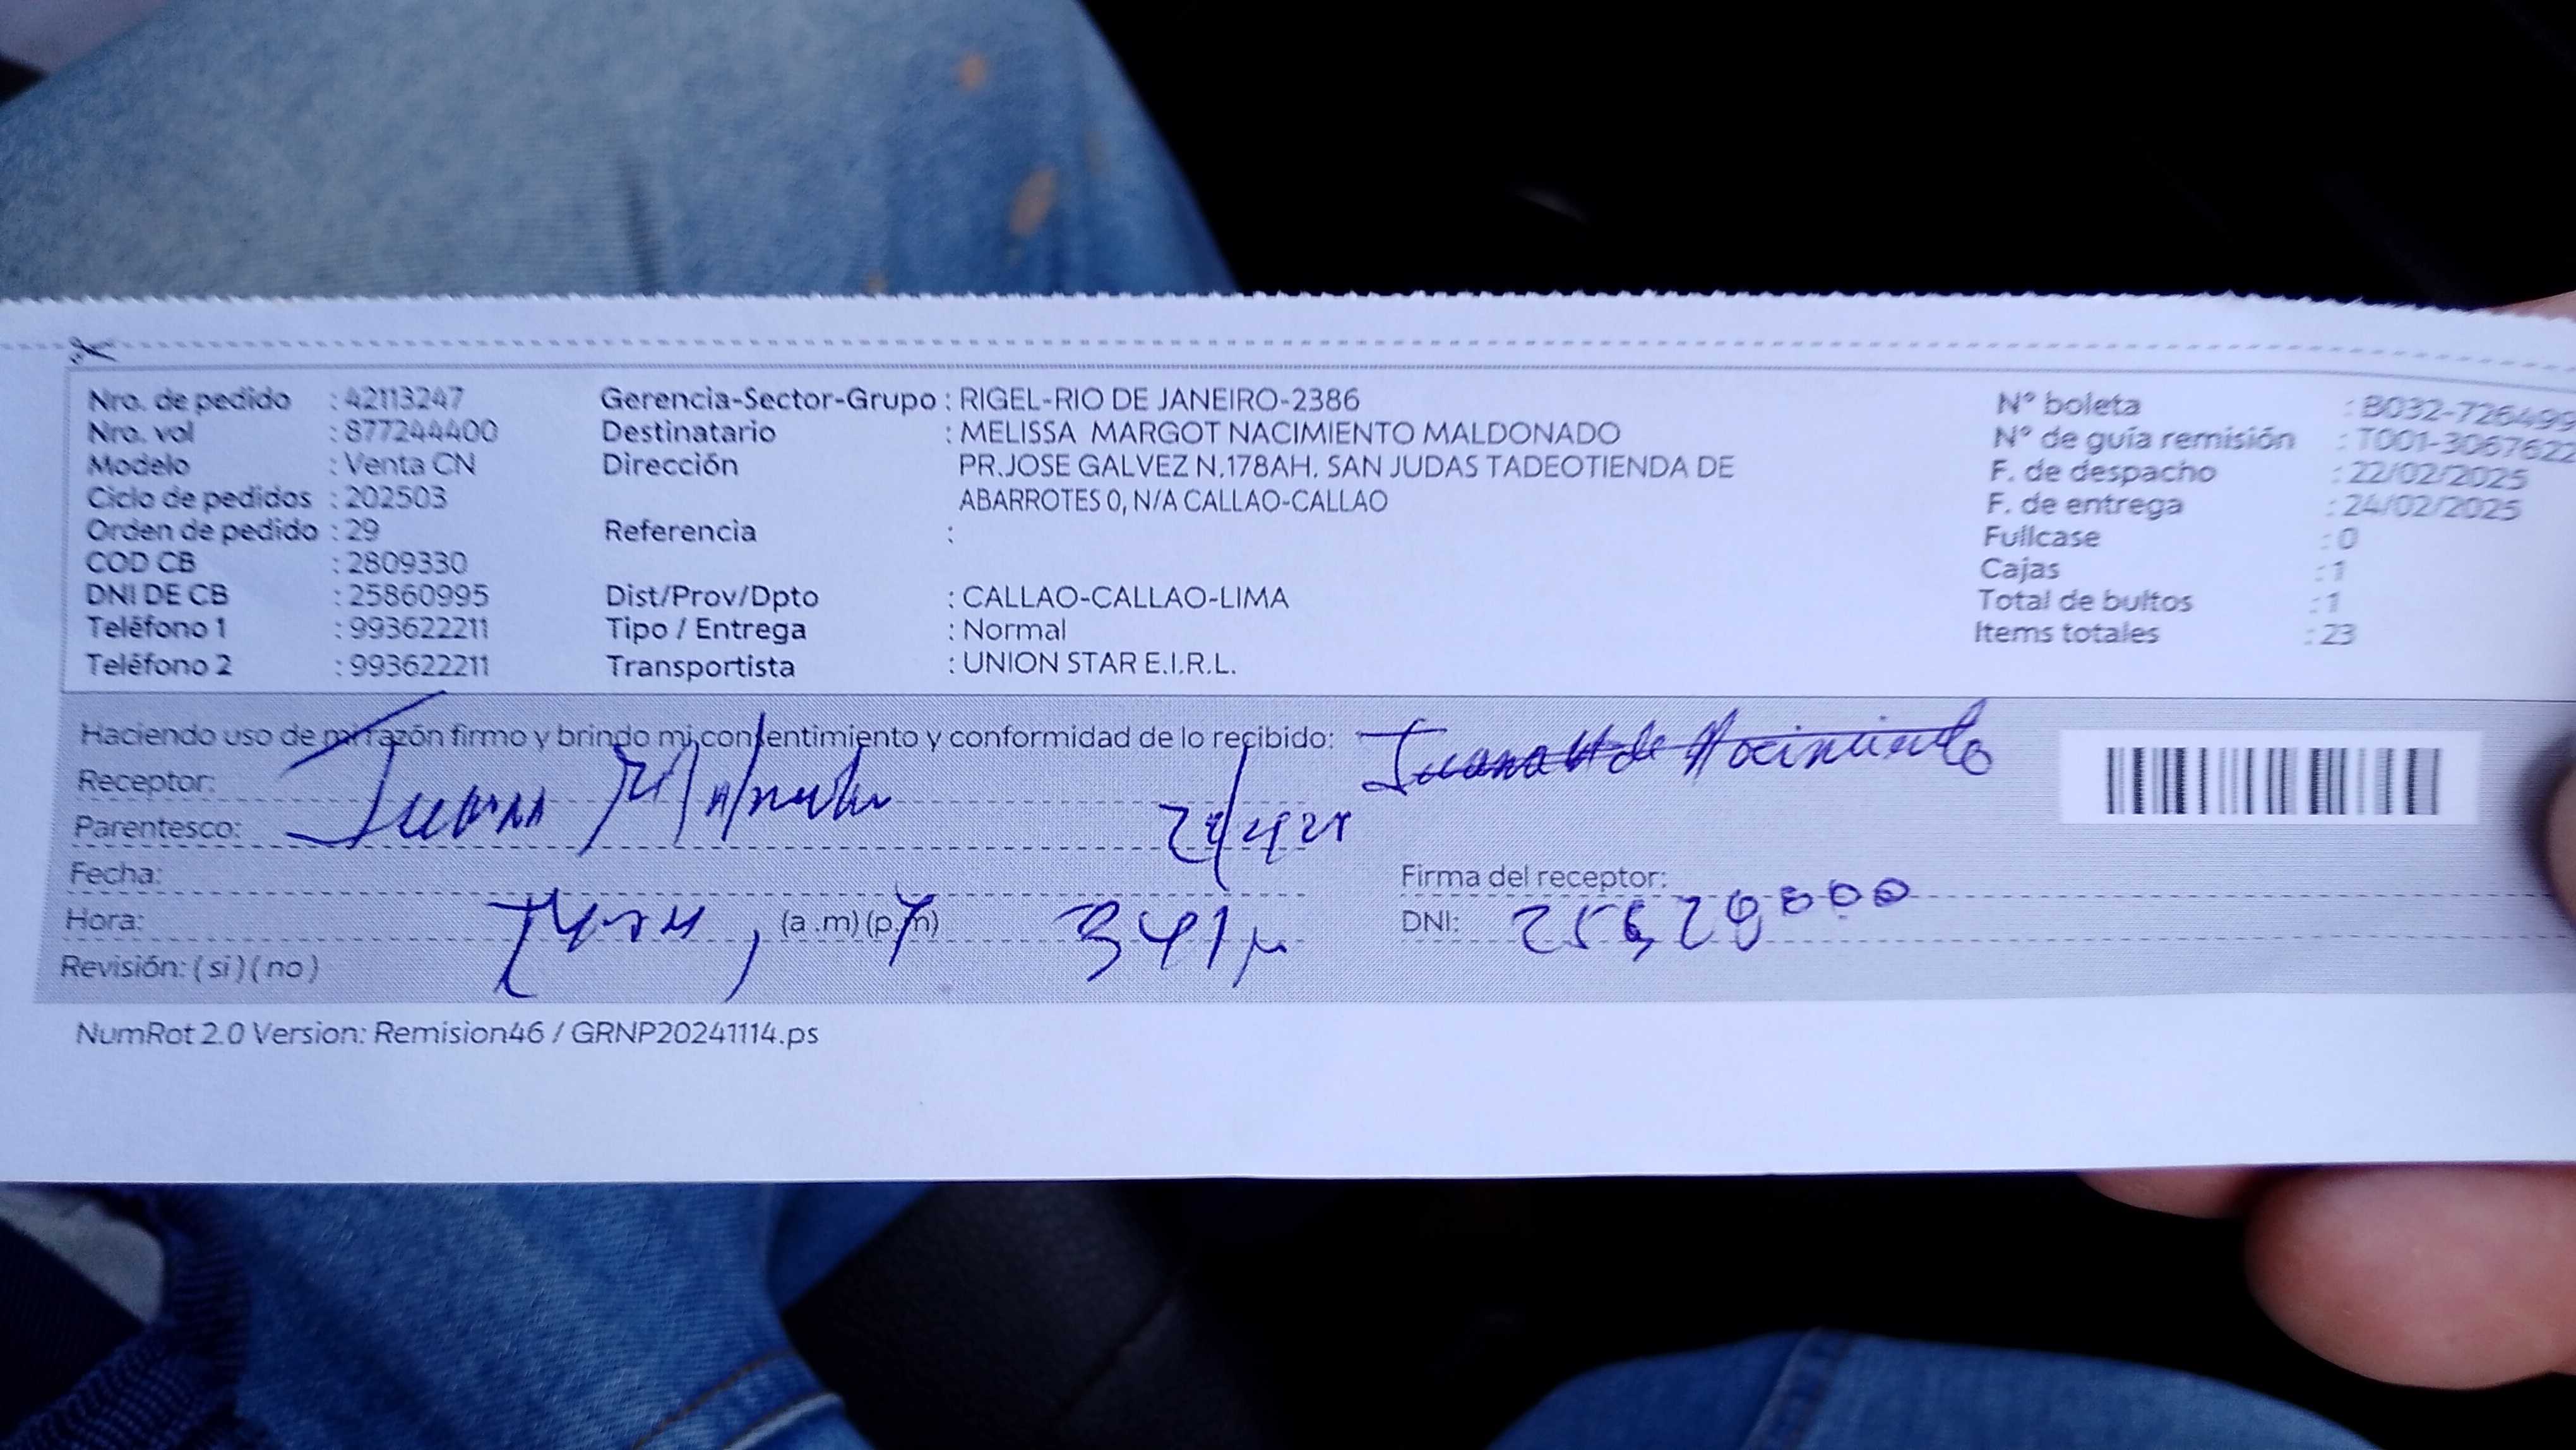 Nro. de pedido : 42113247 Gerencia-Sector-Grupo : RIGEL-RIO DE JANEIRO-2386 N° boleta : B032-726499
Nro. vol : 877244400 Destinatario : MELISSA MARGOT NACIMIENTO MALDONADO N° de guía remisión : T001-3067622
Modelo : Venta CN Dirección PR.JOSE GALVEZ N.178AH. SAN JUDAS TADEOTIENDA DE F. de despacho : 22/02/2025
Ciclo de pedidos : 202503 ABARROTES 0, N/A CALLAO-CALLAO F. de entrega : 24/02/2025
Orden de pedido : 29 Referencia : Fullcase : 0
COD CB : 2809330 Cajas : 1
DNI DE CB : 25860995 Dist/Prov/Dpto : CALLAO-CALLAO-LIMA Total de bultos : 1
Teléfono 1 : 993622211 Tipo / Entrega : Normal Items totales : 23
Teléfono 2 : 993622211 Transportista : UNION STAR E.I.R.L.
Haciendo uso de mi razón firmo y brindo mi consentimiento y conformidad de lo recibido: Juana de Nacimiento
Receptor: Juana
Parentesco:
Fecha: Firma del receptor:
Hora: (a .m) (p.m) DNI:
Revisión: ( si ) ( no )
NumRot 2.0 Version: Remision46 / GRNP20241114.ps